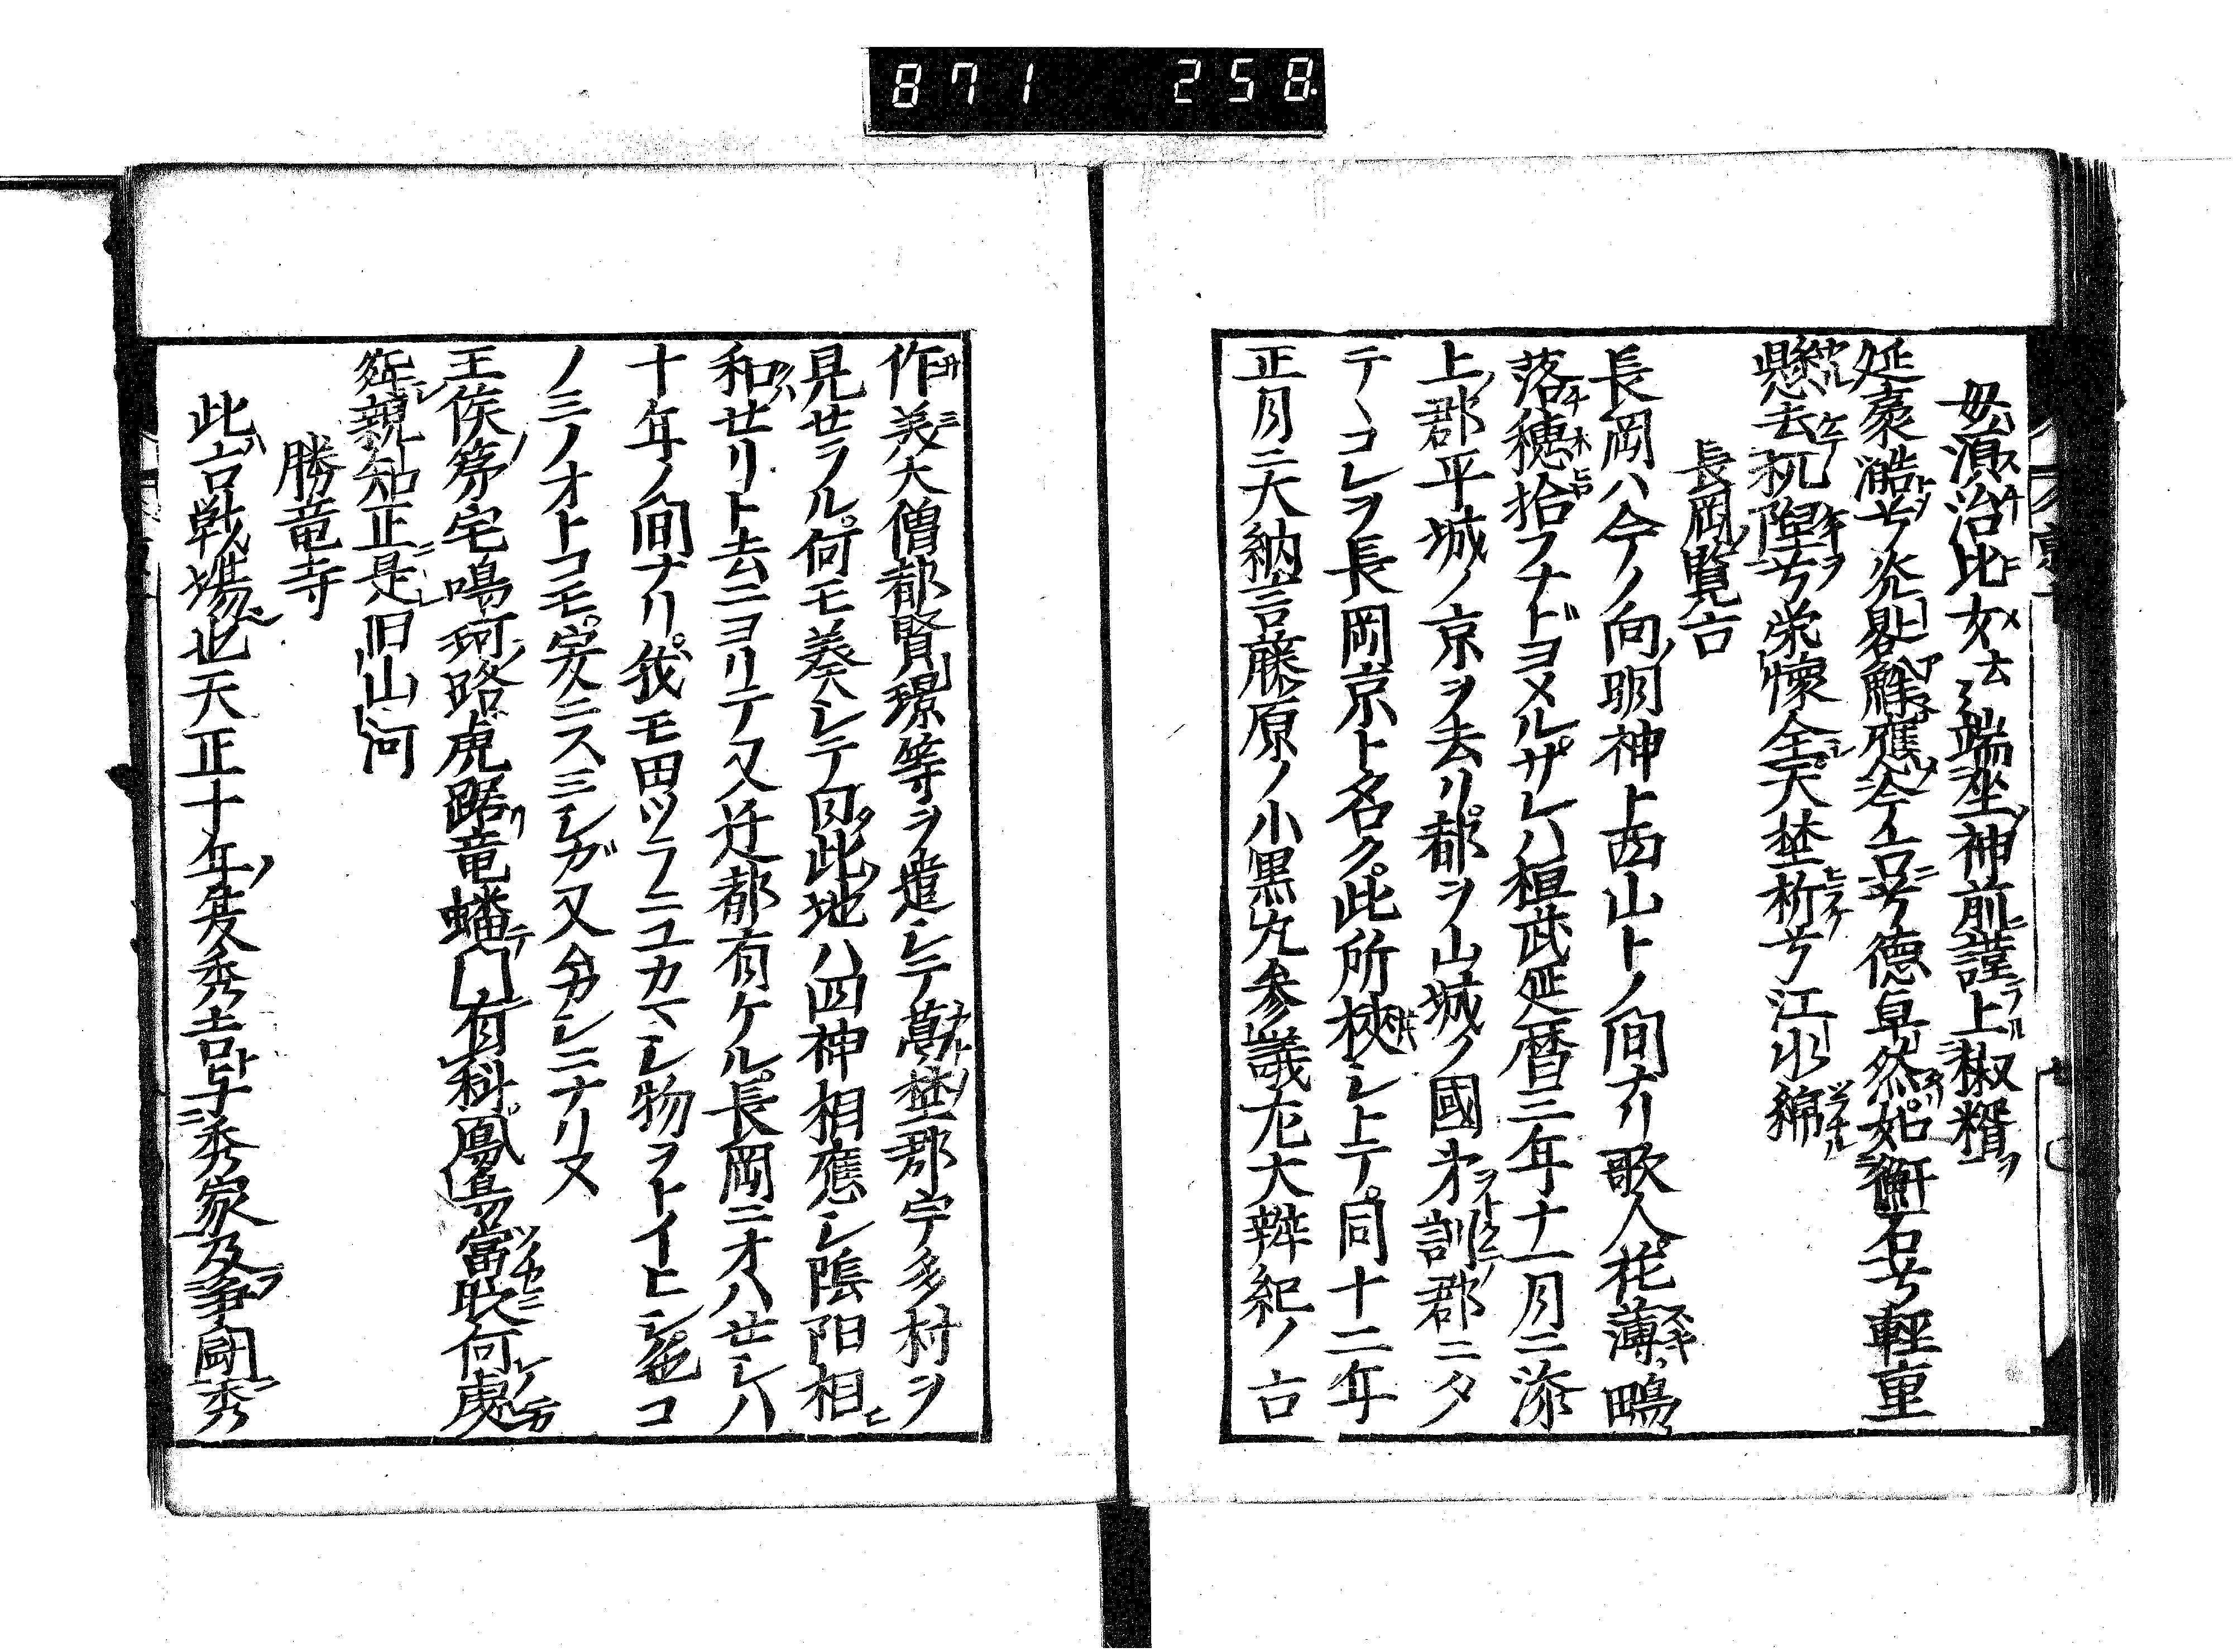 871 258.
毋湏治比女去端坐神前謹上椒糈
延裘澔兮炎晷觧應今吉兮德阜然如衡石兮輕重
懸去杌隉兮栄懷全天埜析兮江水綿
長岡覽古
長岡ハ今ノ向明神ト西山トノ間ナリ歌人花薄鴫
落穂拾フナドヨメルサレハ桓武延暦三年十一月二添
上郡平城ノ京ヲ去リ都ヲ山城ノ國才訓郡ニタ
テヽコレヲ長岡京ト名ク此所挾シトテ同十二年
正月二大納言藤原ノ小黒丸参議左大辨紀ノ古
作美大僧都賢璟等ヲ遣シテ葛埜郡宇多村ヲ
見せラル何モ奏シテ曰此地ハ四神相應シ陰陽相
和せリト去ニヨリテ又迁都有ケル長岡ニオハせシハ
十年ノ間ナリ我モ田ツラニユカマシ物ヲトイヒシ也コ
ノ三ノオトコモ安ニスミシガ又ムカシニナリヌ
王侯第宅鳴珂路虎踞竜蟠□有科鳳鳥富貹何處
奔親知正是旧山河
勝竜寺
此古戦場也天正十年矣秀吉与秀家及爭闘秀